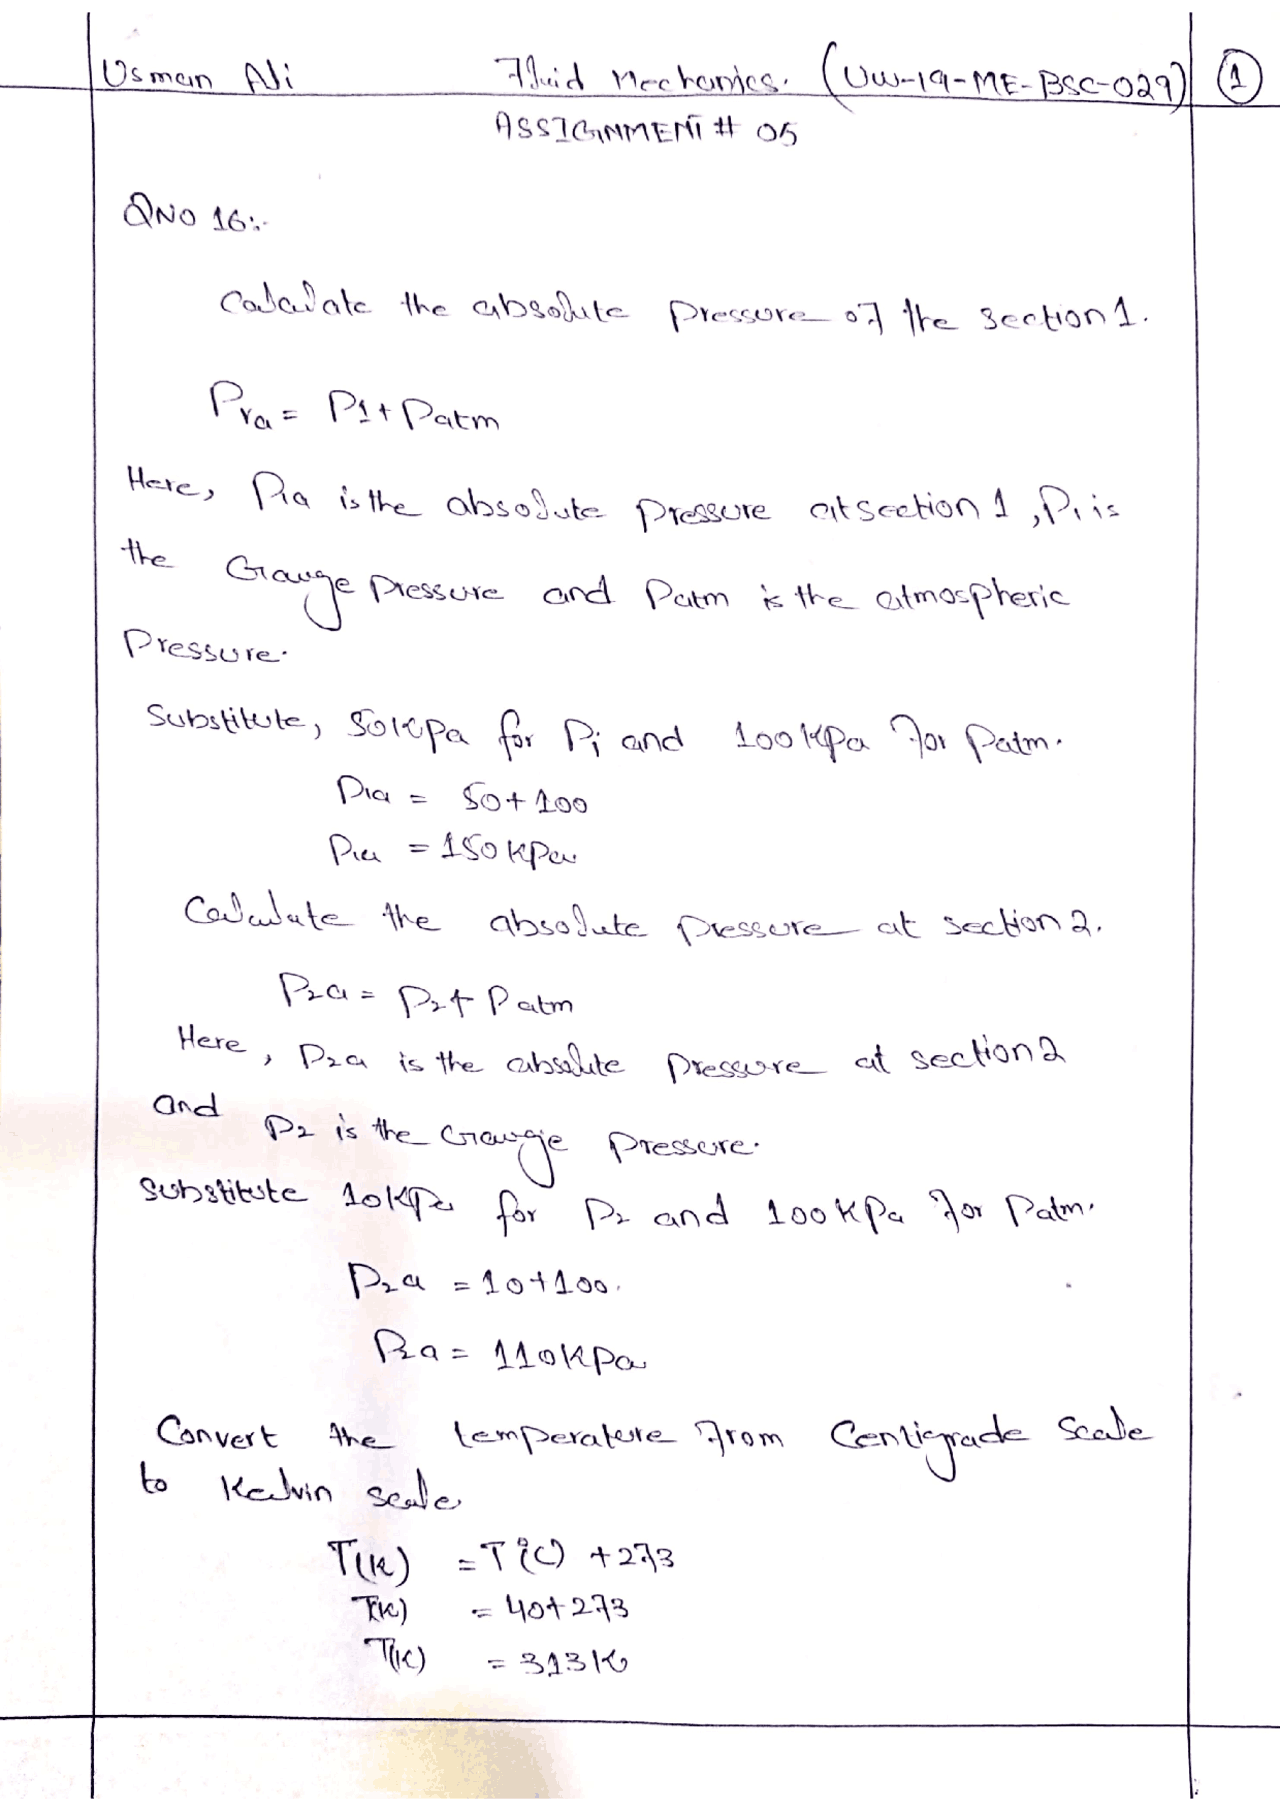 Usman Ali Fluid Mechanics. (UW-19-ME-BSC-029) 1
ASSIGNMENT # 05
QNO 16:-
Calculate the absolute pressure of the section 1.
P1a = P1 + Patm
Here, P1a is the absolute pressure at section 1, P1 is
the Gauge pressure and Patm is the atmospheric
Pressure.
Substitute, 50 KPa for P1 and 100 KPa for Patm.
P1a = 50 + 100
P1a = 150 KPa
Calculate the absolute pressure at section 2.
P2a = P2 + Patm
Here, P2a is the absolute pressure at section 2
and P2 is the Gauge pressure.
Substitute 10KPa for P2 and 100 KPa for Patm.
P2a = 10 + 100.
P2a = 110 KPa
Convert the temperature from Centigrade Scale
to Kelvin scale
T(K) = T(°C) + 273
T(K) = 40 + 273
T(K) = 313 K